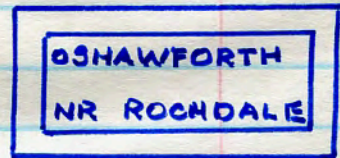 OSHAWFORTH
NR ROCHDALE